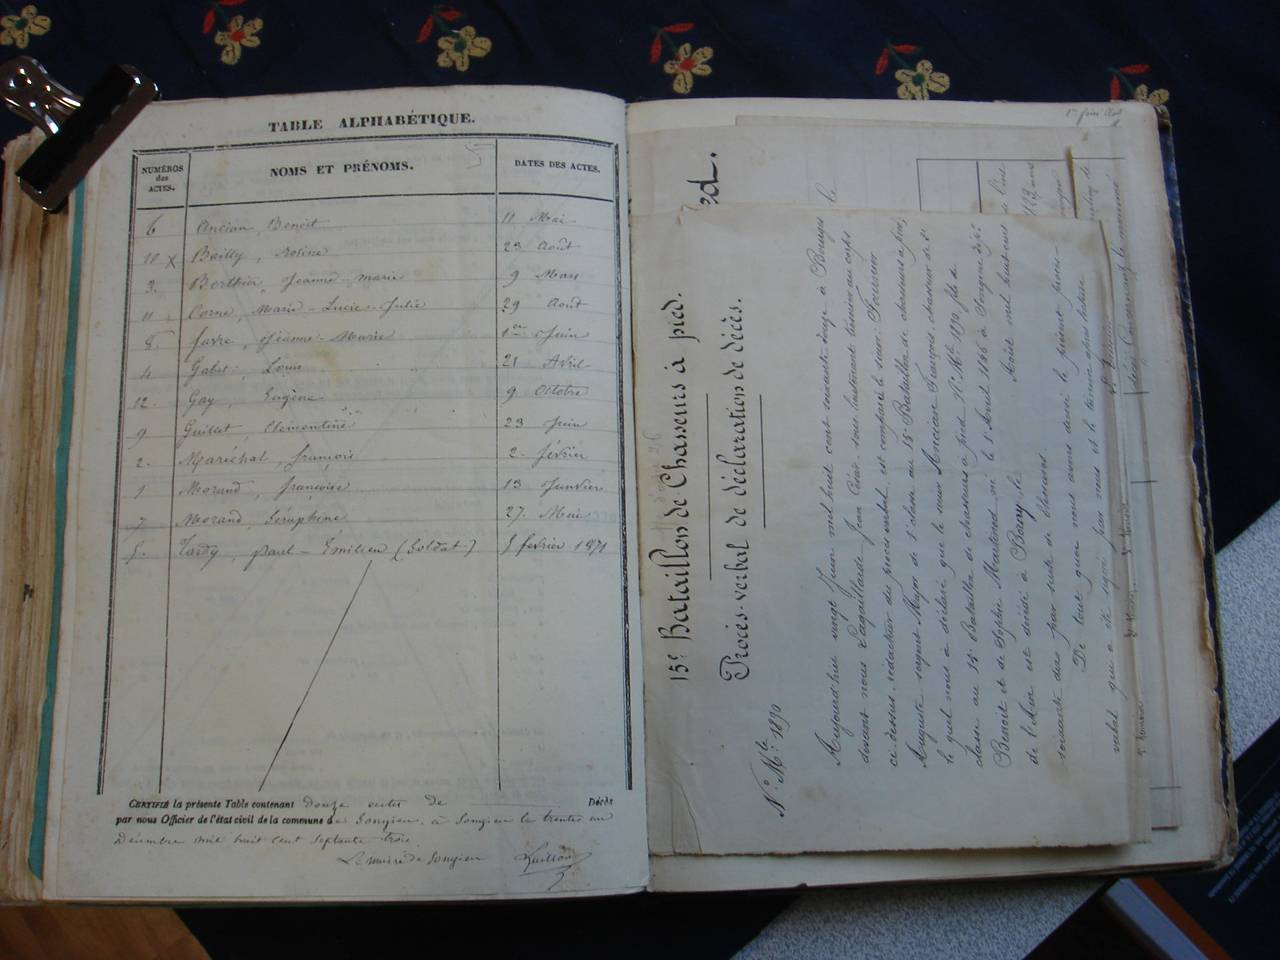 TABLE ALPHABÉTIQUE.
NUMÉROS des ACTES.
NOMS ET PRÉNOMS.
DATES DES ACTES.
6 Ancian, Benoit 11 Mai
10 x Bailly, Rosine 23 Août
3. Berthier, Jeanne-marie 9 Mars
11 Corne, Marie-Lucie-Julie 29 Août
8. favre, Jeanne-Marie 1er Juin
4 Gabet, Louis 21 Avril
12. Gay, Eugène 9 Octobre
9 Guillet, Clémentine 23 Juin
2. Maréchal, françois 2. février
1 Morand, françoise 13 Janvier
7 Morand, Séraphine 27. Mai
5. Tardy, paul-Émilien (Soldat) 5 février 1871
CERTIFIÉ la présente Table contenant douze actes de Décès
par nous Officier de l'état civil de la commune de Songieu, à Songieu le trente un
Décembre mil huit cent septante trois.
Le maire de Songieu
15e Bataillon de Chasseurs à pied.
Procès-verbal de déclaration de décès.
No Mle 1890
Aujourd'hui vingt Juin mil huit cent soixante douze à Bourges
devant nous Lagaillarde Jean César sous-lieutenant
ci-dessus, rédacteur du procès verbal, est comparu le sieur Fournier
Auguste sergent Major de 1e classe au 15e Bataillon de chasseurs à pied,
le quel nous a déclaré que le sieur Ancian François, chasseur de 2e
classe au 15e Bataillon de chasseurs à pied No Mle 1890, fils de
Benoît et de Sophie Martinod, né le 5 Avril 1846 à Songieu dépt
de l'Ain est décédé à Borny le Août mil huit cent
soixante dix par suite de blessures.
De tout quoi nous avons dressé le présent procès-
verbal qui a été signé par nous et le témoin après lecture.